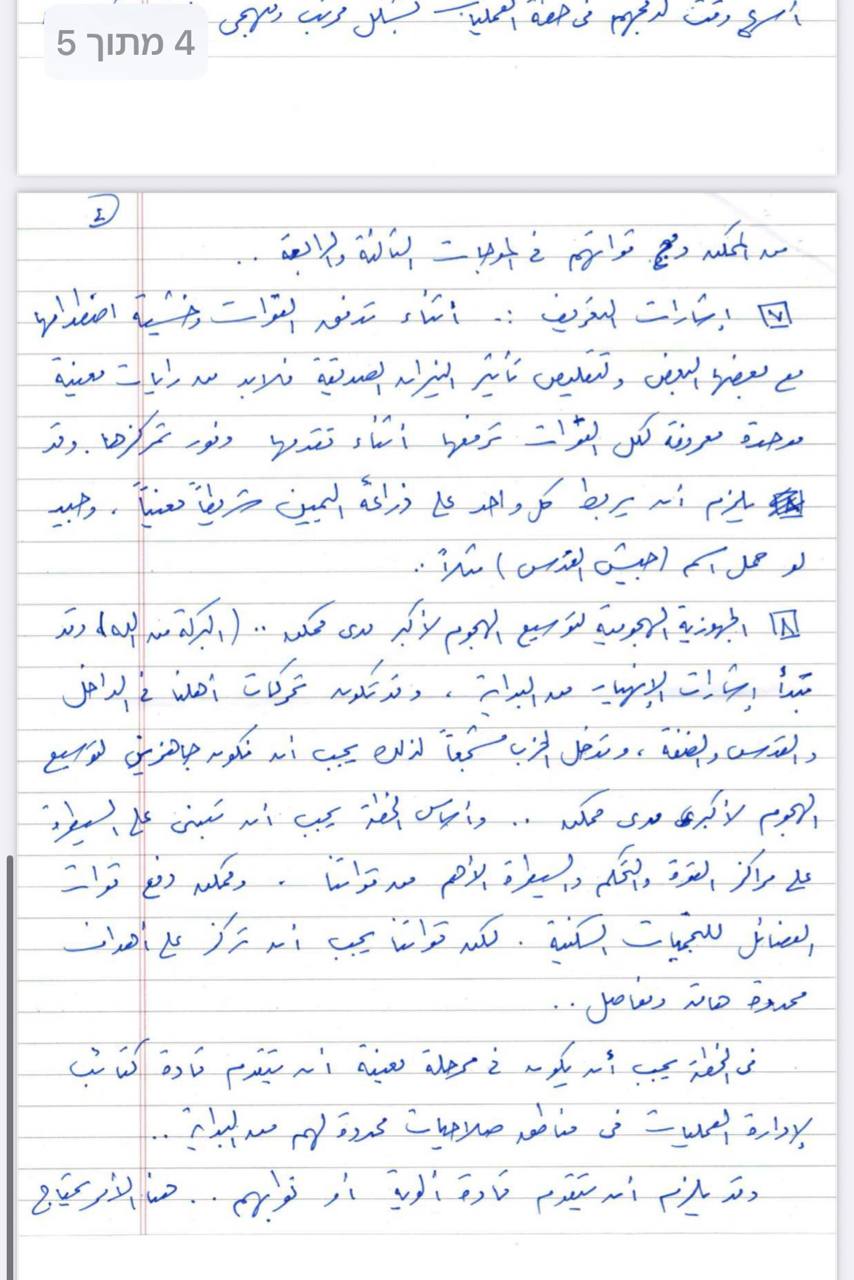 أسرع وقت لدمجهم في خطة العمليات بشكل مرتب ومنهجي
4 מתוך 5
٤
من الممكن دمج قواتهم في الموجات الثالثة والرابعة ..
٧ إشارات التعريف :. أثناء تدفق القوات وخشية اصطدامها
مع بعضها البعض ولتقليص تأثير النيران الصديقة فلابد من رايات معينة
موحدة معروفة لكل القوات ترفعها أثناء تقدمها وفور تمركزها. وقد
يلزم أن يربط كل واحد على ذراعه اليمين شريطاً معيناً ، وحبذ
لو حمل اسم (جيش القدس) مثلاً ..
٨ الجهوزية الهجومية لتوسيع الهجوم لأكبر مدى ممكن .. (البركة من الله) وقد
تبدأ إشارات الإنهيار من البداية ، وقد تكون تحركات أهلنا في الداخل
والقدس والضفة ، وتدخل الحزب مشجعاً لذلك يجب أن نكون جاهزين لتوسيع
الهجوم لأكبر مدى ممكن .. وأساس الخطة يجب أن تبنى على السيطرة
على مراكز القوة والتحكم والسيطرة الأهم من قواتنا . وممكن دفع قوات
الفصائل للتجمعات السكنية . لكن قواتنا يجب أن تركز على أهداف
محددة هامة ومفاصل ..
في الخطة يجب أن يكون في مرحلة معينة أن يتقدم قادة كتائب
لإدارة العمليات في مناطق صلاحيات محددة لهم من البداية ..
وقد يلزم أن يتقدم قادة ألوية أو نوابهم .. هذا الأمر يحتاج